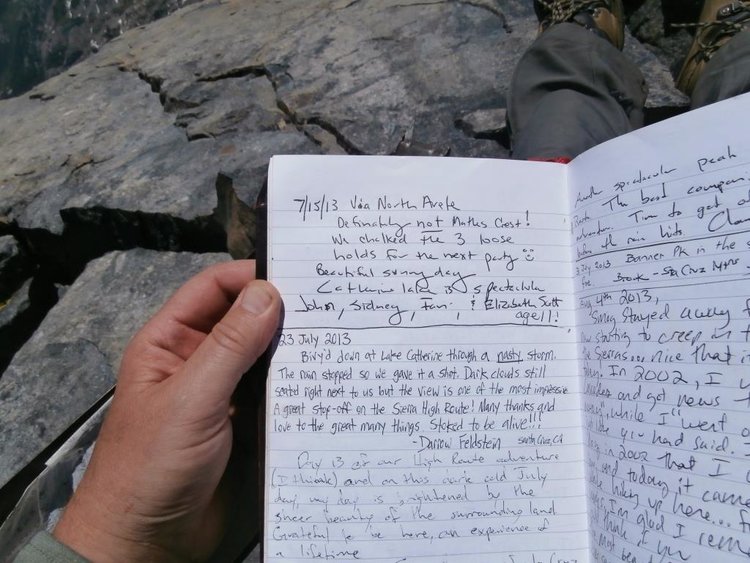 7/15/13 Via North Arete
Definately not Mathes Crest!
We chalked the 3 loose
holds for the next party ☺
Beautiful sunny day
Catherine lake is spectacular
John, Sidney, & Elizabeth Scott
age 11!
23 July 2013
Bivy'd down at Lake Catherine through a nasty storm.
The rain stopped so we gave it a shot. Dark clouds still
seat'd right next to us but the view is one of the most impressive.
A great stop-off on the Sierra High Route! Many thanks and
love to the great many things. Stoked to be alive!!!
- Feldstein Santa Cruz, CA
Day 13 of our High Route adventure
(I think) and on this dark cold July
day, my day is brightened by the
sheer beauty of the surrounding land
Grateful to be here, an experience of
a lifetime
Another spectacular peak
The best compan
Time to get o
before the rain hits.
July 2013 Banner Pk in the
Santa Cruz Mtns
4th 2013,
stayed away f
starting to creep in t
e Sierras... nice that i
In 2002, I w
and got news t
while I went o
you had said. I
in 2002 that I
and today it came
hiking up here...
I'm glad I reme
think if you